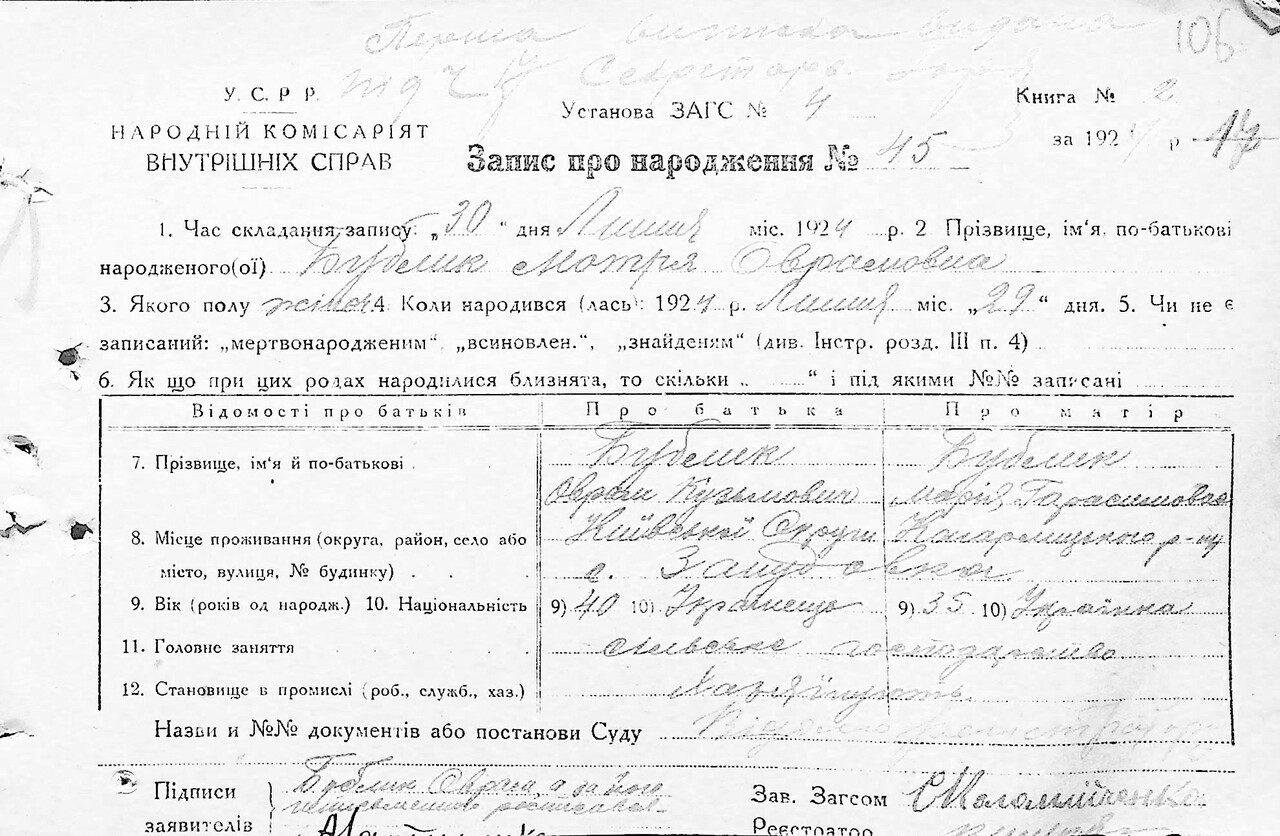 106
Перша виписка видана
під ч Секретарь
У. С. Р. Р.
НАРОДНІЙ КОМІСАРІЯТ
ВНУТРІШНІХ СПРАВ
Установа ЗАГС № 4
Книга № 2
за 1924 р 17
Запис про народження № 45
1. Час складання запису: „30“ дня Липня міс. 1924 р. 2 Прізвище, ім'я, по-батькові
народженого(ої) Бублик Мотря Оврамовна
3. Якого полу жіноч. 4 Коли народився (лась): 1924 р. Липня міс. „29“ дня. 5. Чи не є
записаний: „мертвонародженим“, „всиновлен.“, „знайденям“ (див. Інстр. розд. III п. 4)
6. Як що при цих родах народилися близнята, то скільки .. “ і під якими №№ записані
Відомості про батьків Про батька Про матір
7. Прізвище, ім'я й по-батькові . Бублик Бублик
Оврам Кузьмович Марія Гарасимовна
8. Місце проживання (округа, район, село або Київської Округи Кагарлицького р-ну
місто, вулиця, № будинку) . . с.
9. Вік (років од народж.) 10. Національність 9) 40 10) Українець 9) 35 10) Українка
11. Головне заняття . . . сільське господарство
12. Становище в промислі (роб., служб., хаз.) Хазяїнують
Назви и №№ документів або постанови Суду
Підписи
заявителів
Бублик Оврам, а за його
Зав. Загсом
Реєстратор